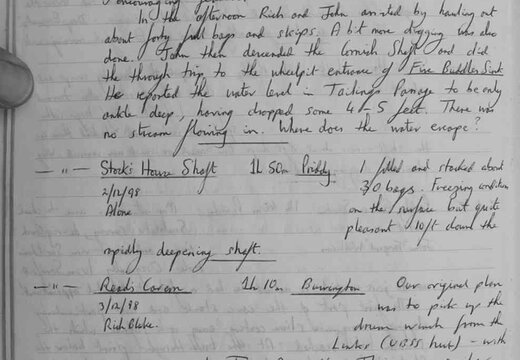 In the afternoon Rich and John assisted by hauling out
about forty full bags and skips. A bit more digging was also
done. John then descended the Cornish Shaft and did
the through trip to the wheelpit entrance of Five Buddles Sink
He reported the water level in Tailings Passage to be only
ankle deep, having dropped some 4 - 5 feet. There was
no stream flowing in. Where does the water escape?
- " - Stock's House Shaft 1h 50m Priddy 1 filled and stacked about
2/12/98 30 bags. Freezing conditions
Alone on the surface but quite
pleasant 10ft down the
rapidly deepening shaft.
- " - Reads Cavern 1h 10m Burrington Our original plan
3/12/98 was to pick up the
Rich Blake. drum winch from the
Links (UBSS hut) - with